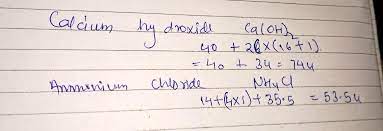 Calcium hydroxide Ca(OH)2
40 + 2x(16+1)
= 40 + 34 = 74u
Ammonium chloride NH4Cl
14+(4x1)+35.5 = 53.5u